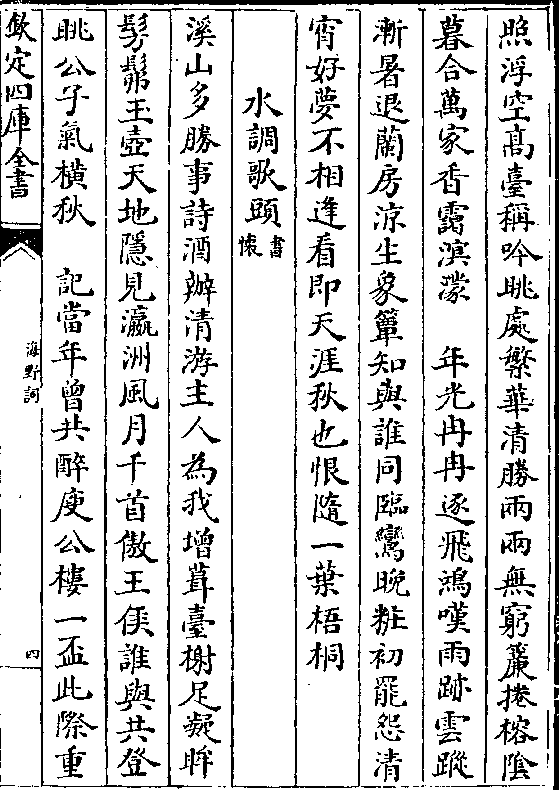 照浮空髙臺稱吟眺處繁華清勝兩兩無窮簾捲榕隂
暮合萬家香靄溟濛　年光冉冉逐飛鴻嘆雨跡雲蹤
漸暑退蘭房涼生象簟知與誰同臨鸞晚粧初罷怨清
宵好夢不相逢看即天涯秋也恨隨一葉梧桐
水調歌頭書懷
溪山多勝事詩酒辦清游主人為我增葺臺榭足凝眸
髣髴玉壺天地隱見瀛洲風月千首傲王侯誰與共登
眺公子氣橫秋　記當年曾共醉庾公樓一盃此際重
欽定四庫全書
海野詞
四